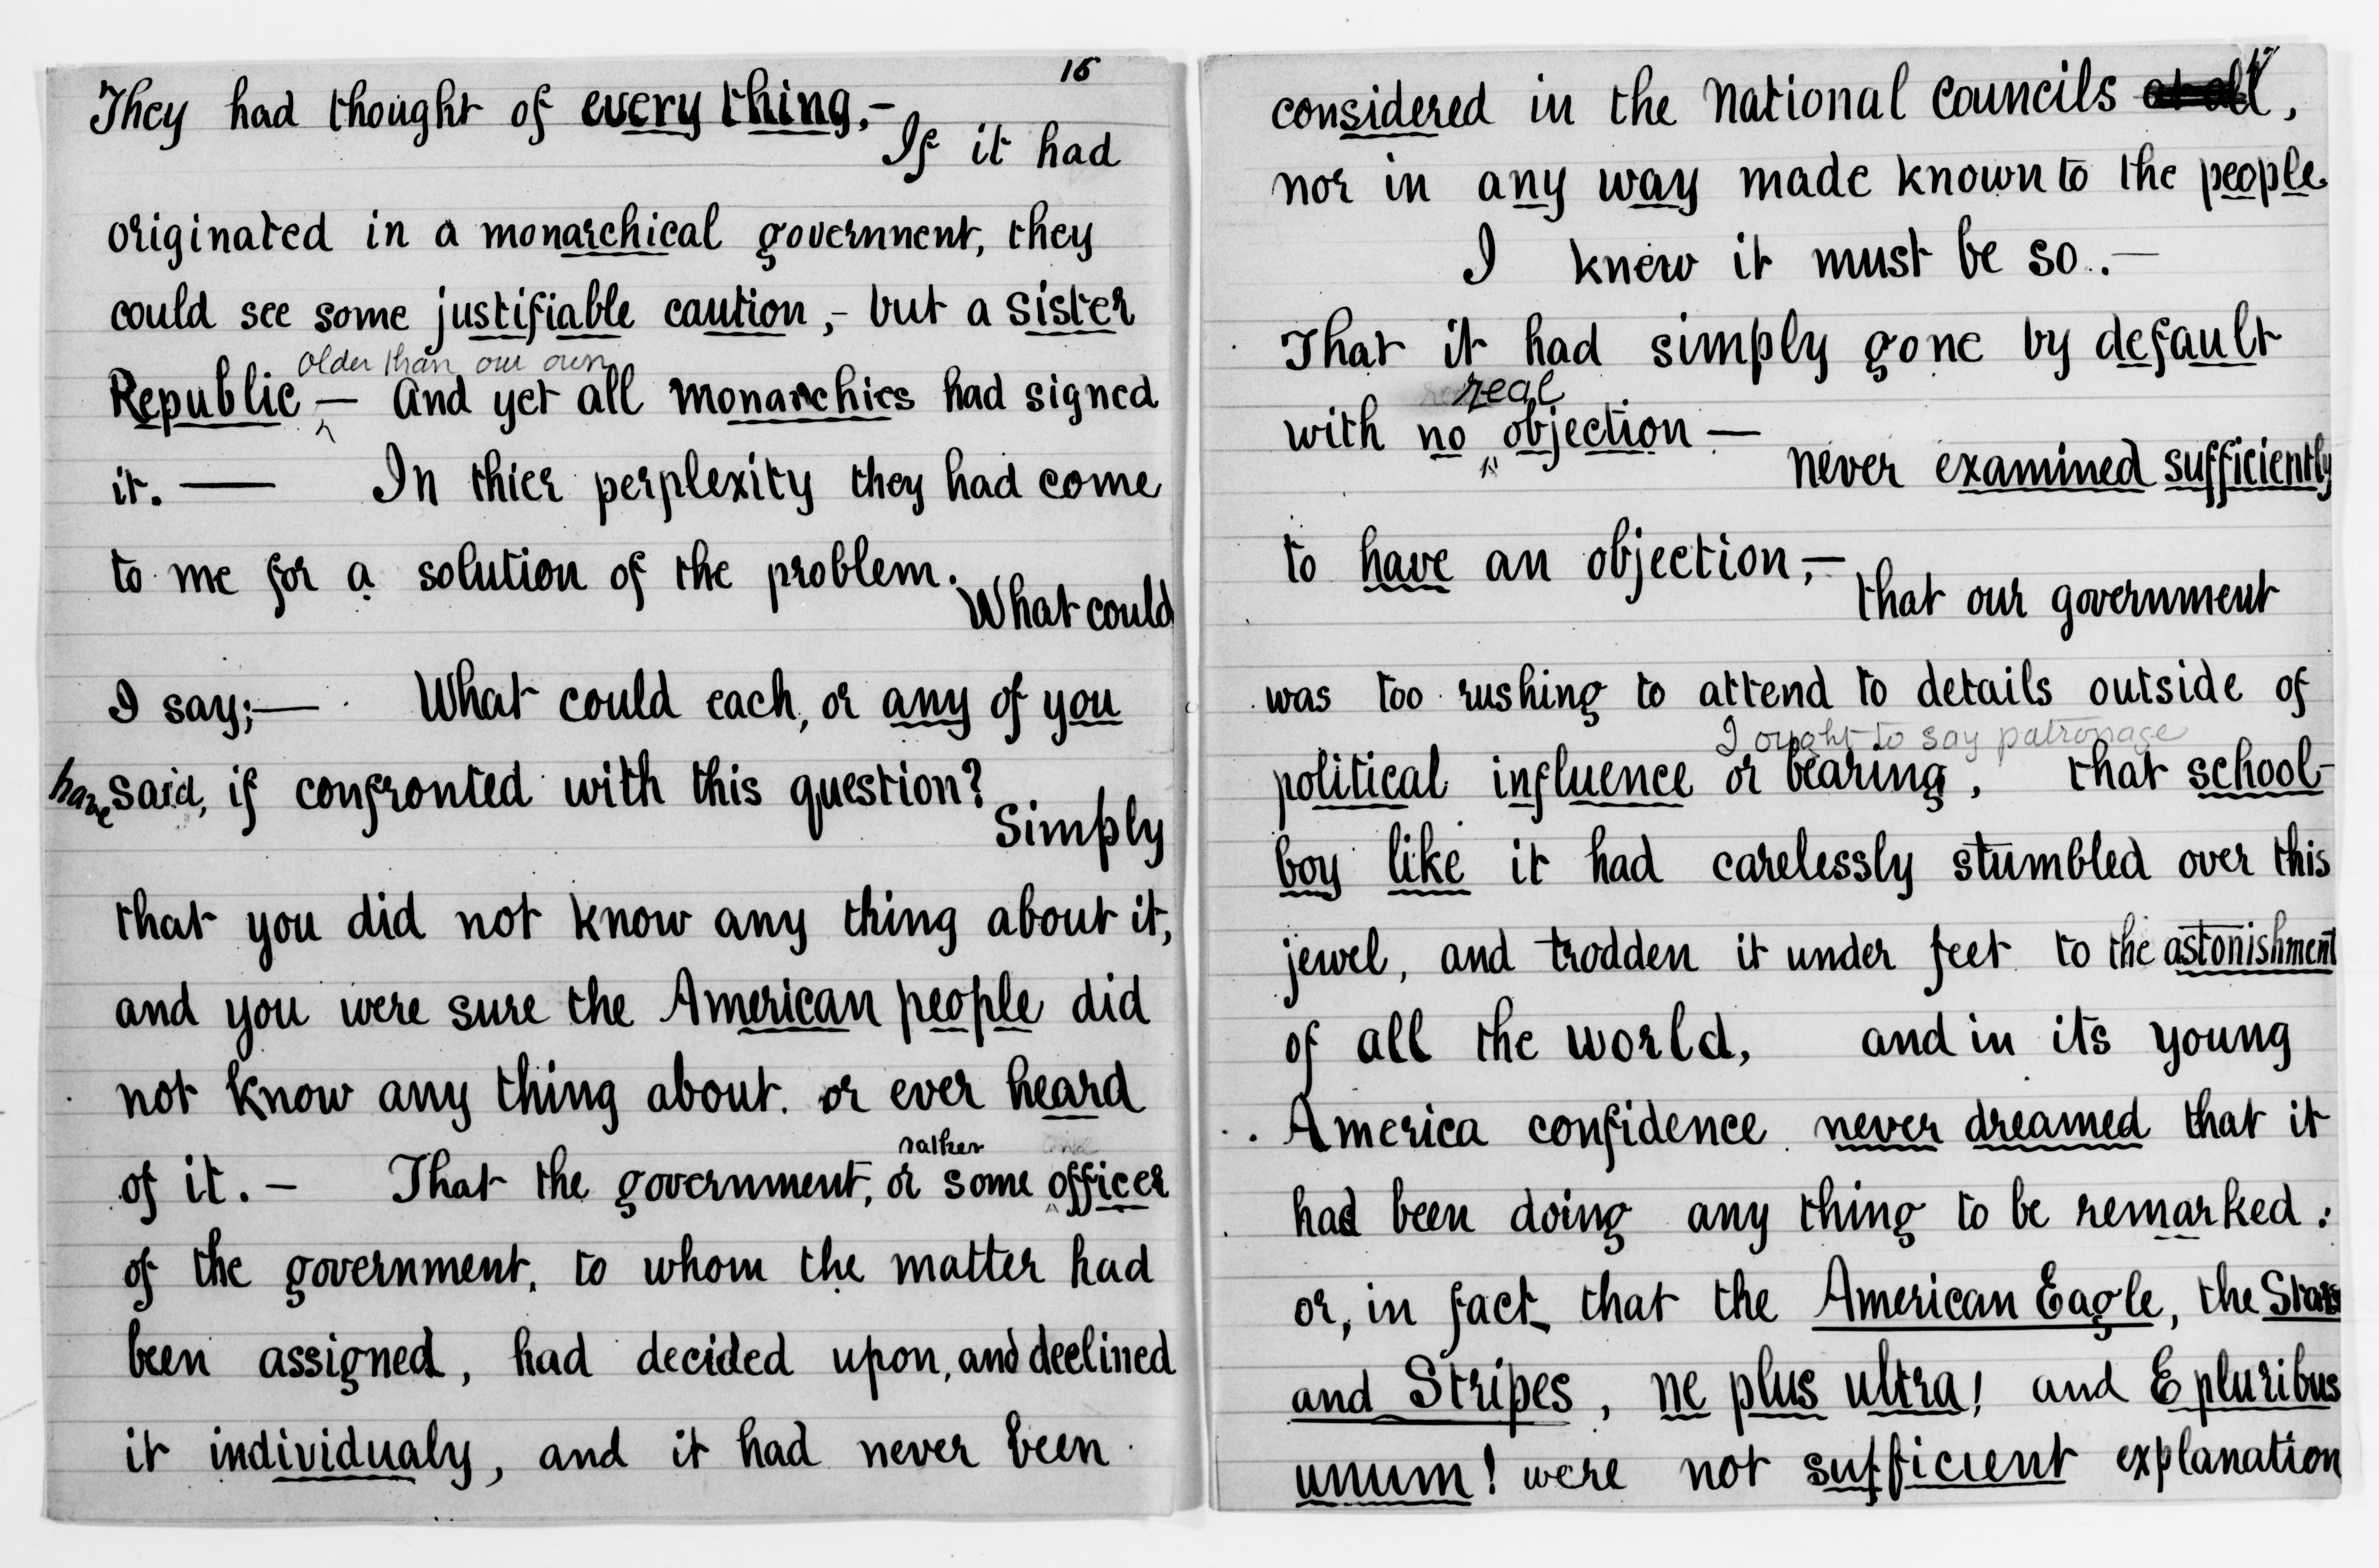 16
They had thought of every thing.—
If it had
originated in a monarchical government, they
could see some justifiable caution,- but a sister
older than our own
Republic — And yet all monarchies had signed
it. — In thier perplexity they had come
to me for a solution of the problem.
What could
I say;— What could each, or any of you
have said, if confronted with this question?
Simply
that you did not know any thing about it,
and you were sure the American people did
not know any thing about. or ever heard
rather
of it. — That the government, or some officer
of the government, to whom the matter had
been assigned, had decided upon, and declined
it individualy, and it had never been
17
considered in the National Councils at all,
nor in any way made known to the people
I knew it must be so..—
That it had simply gone by default
real
with no objection —
never examined sufficiently
to have an objection,—
that our government
was too rushing to attend to details outside of
I ought to say patronage
political influence or bearing, that school-
boy like it had carelessly stumbled over this
jewel, and trodden it under feet to the astonishment
of all the world, and in its young
America confidence never dreamed that it
had been doing any thing to be remarked:
or, in fact that the American Eagle, the Stars
and Stripes, ne plus ultra! and E pluribus
unum! were not sufficient explanation